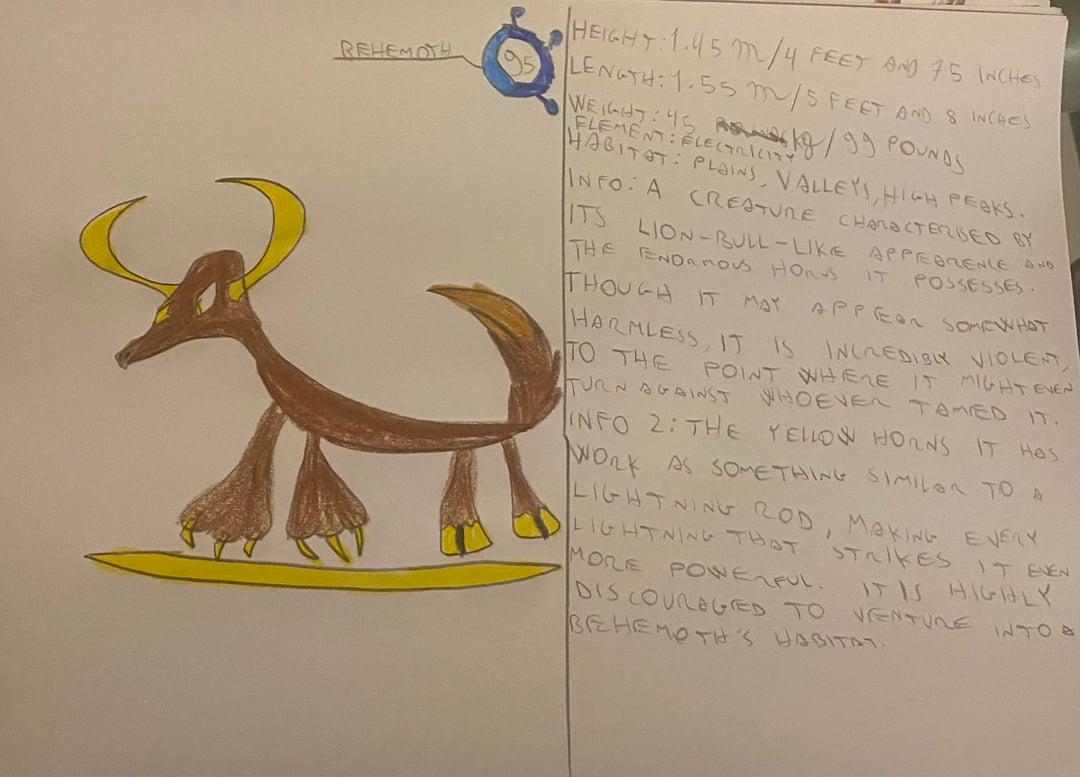 BEHEMOTH
95
HEIGHT: 1.45 m/4 FEET AND 75 INCHES
LENGTH: 1.55 m/5 FEET AND 8 INCHES
WEIGHT: 45 kg/99 POUNDS
ELEMENT: ELECTRICITY
HABITAT: PLAINS, VALLEYS, HIGH PEAKS.
INFO: A CREATURE CHARACTERISED BY
ITS LION-BULL-LIKE APPEARENCE AND
THE ENORMOUS HORNS IT POSSESSES.
THOUGH IT MAY APPEAR SOMEWHAT
HARMLESS, IT IS INCREDIBLY VIOLENT,
TO THE POINT WHERE IT MIGHT EVEN
TURN AGAINST WHOEVER TAMED IT.
INFO 2: THE YELLOW HORNS IT HAS
WORK AS SOMETHING SIMILAR TO A
LIGHTNING ROD, MAKING EVERY
LIGHTNING THAT STRIKES IT EVEN
MORE POWERFUL. IT IS HIGHLY
DISCOURAGED TO VENTURE INTO A
BEHEMOTH'S HABITAT.